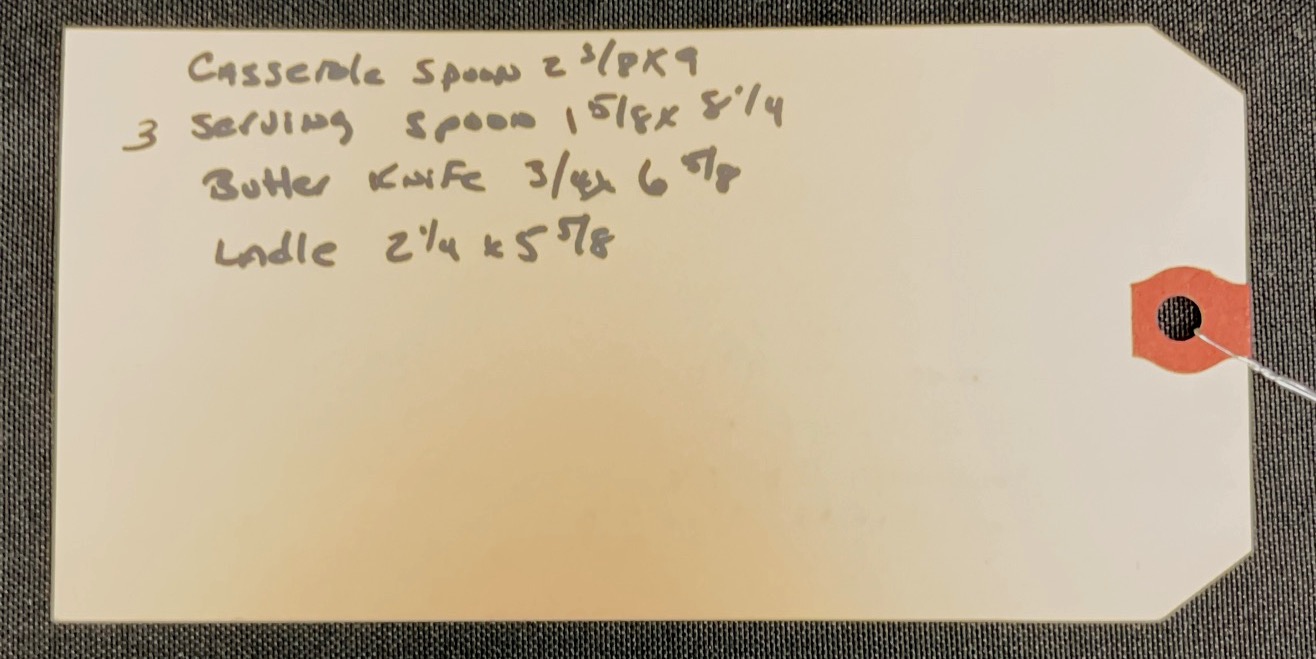 Casserole Spoon 2 3/8 x 9
3 Serving Spoon 1 5/8 x 8 1/4
Butter Knife 3/4 x 6 5/8
Ladle 2 1/4 x 5 5/8